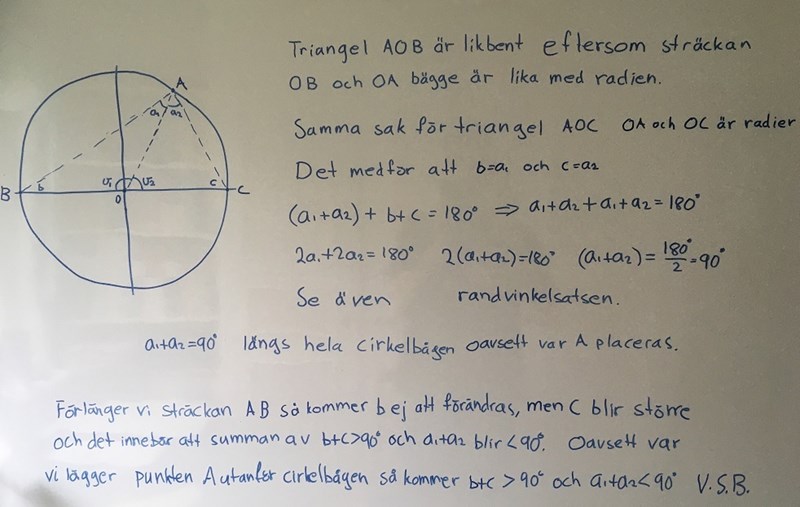 Triangel AOB är likbent eftersom sträckan
OB och OA bägge är lika med radien.
Samma sak för triangel AOC OA och OC är radier
Det medför att b=a₁ och c=a₂
(a₁+a₂) + b+c = 180° ⇒ a₁+a₂+a₁+a₂=180°
2a₁+2a₂=180° 2(a₁+a₂)=180° (a₁+a₂)=180°/2=90°
Se även randvinkelsatsen.
A
a₁ a₂
B b v₁ v₂ c C
O
a₁+a₂=90° längs hela cirkelbågen oavsett var A placeras.
Förlänger vi sträckan AB så kommer b ej att förändras, men C blir större
och det innebär att summan av b+c>90° och a₁+a₂ blir <90°. Oavsett var
vi lägger punkten A utanför cirkelbågen så kommer b+c >90° och a₁+a₂<90° V.S.B.